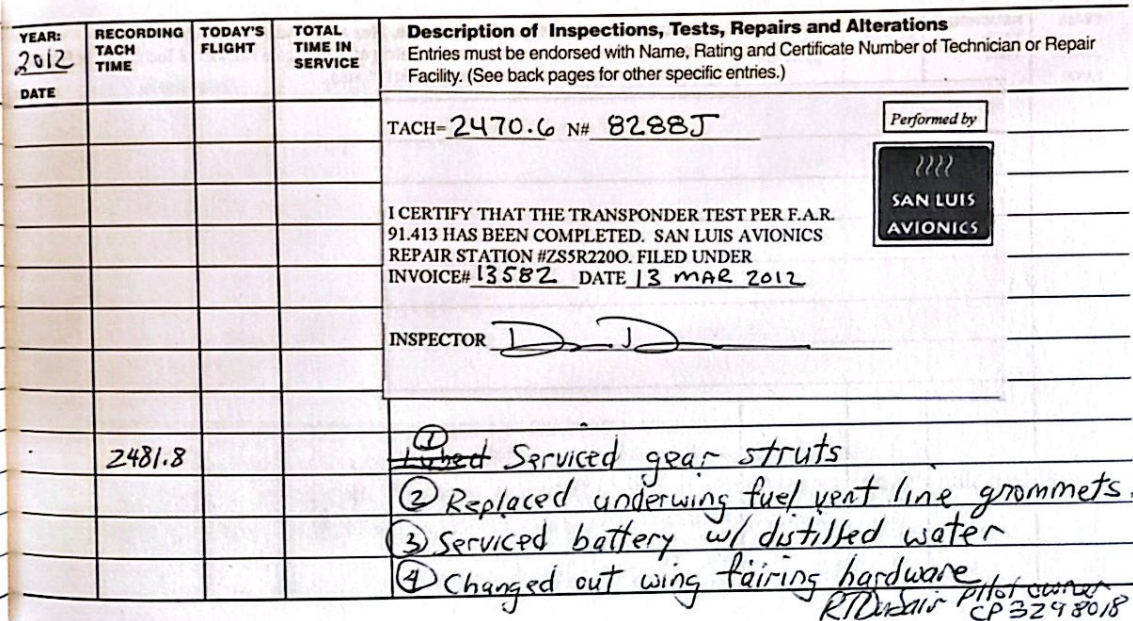 YEAR: RECORDING TODAY'S TOTAL Description of Inspections, Tests, Repairs and Alterations
2012 TACH FLIGHT TIME IN Entries must be endorsed with Name, Rating and Certificate Number of Technician or Repair
DATE TIME SERVICE Facility. (See back pages for other specific entries.)
TACH= 2470.6 N# 8288J
Performed by
SAN LUIS
AVIONICS
I CERTIFY THAT THE TRANSPONDER TEST PER F.A.R.
91.413 HAS BEEN COMPLETED. SAN LUIS AVIONICS
REPAIR STATION #ZS5R220O. FILED UNDER
INVOICE# 13582 DATE 13 MAR 2012
INSPECTOR
2481.8 ① Serviced gear struts
② Replaced underwing fuel vent line grommets.
③ Serviced battery w/ distilled water
④ Changed out wing fairing hardware
pilot owner
CP 3298018